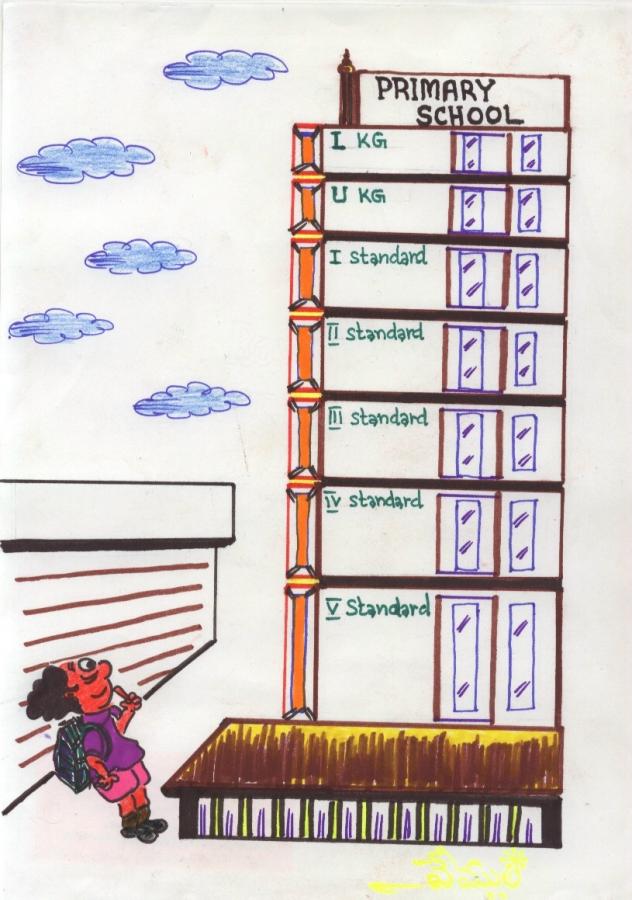 PRIMARY
SCHOOL
L KG
U KG
I standard
II standard
III standard
IV standard
V standard